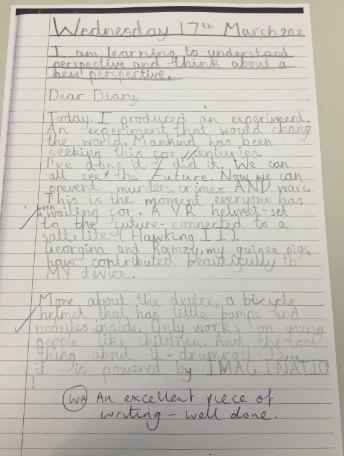 Wednesday 17th March 202
I am learning to understand
perspective and think about a
new perspective.
Dear Diary,
Today, I produced an experiment.
An experiment that would change
the world. Mankind has been
seeking this for centuries.
I've done it I did it. We can
all see the Future. Now we can
prevent murders, crimes AND wars.
This is the moment everyone has
been
waiting for. A VR helmet-set
to the future-connected to a
sattelite (Hawking II).
Georgina and Ramzy, my guinea pigs,
have contributed beautifully to
MY device.
More about the device, a bicycle
helmet that has little bumps and
nodules inside. Only works on young
people like children. And the cool
thing about it - drumroll - is...
it is powered by IMAGINATIO
!
WA An excellent piece of
writing - well done.